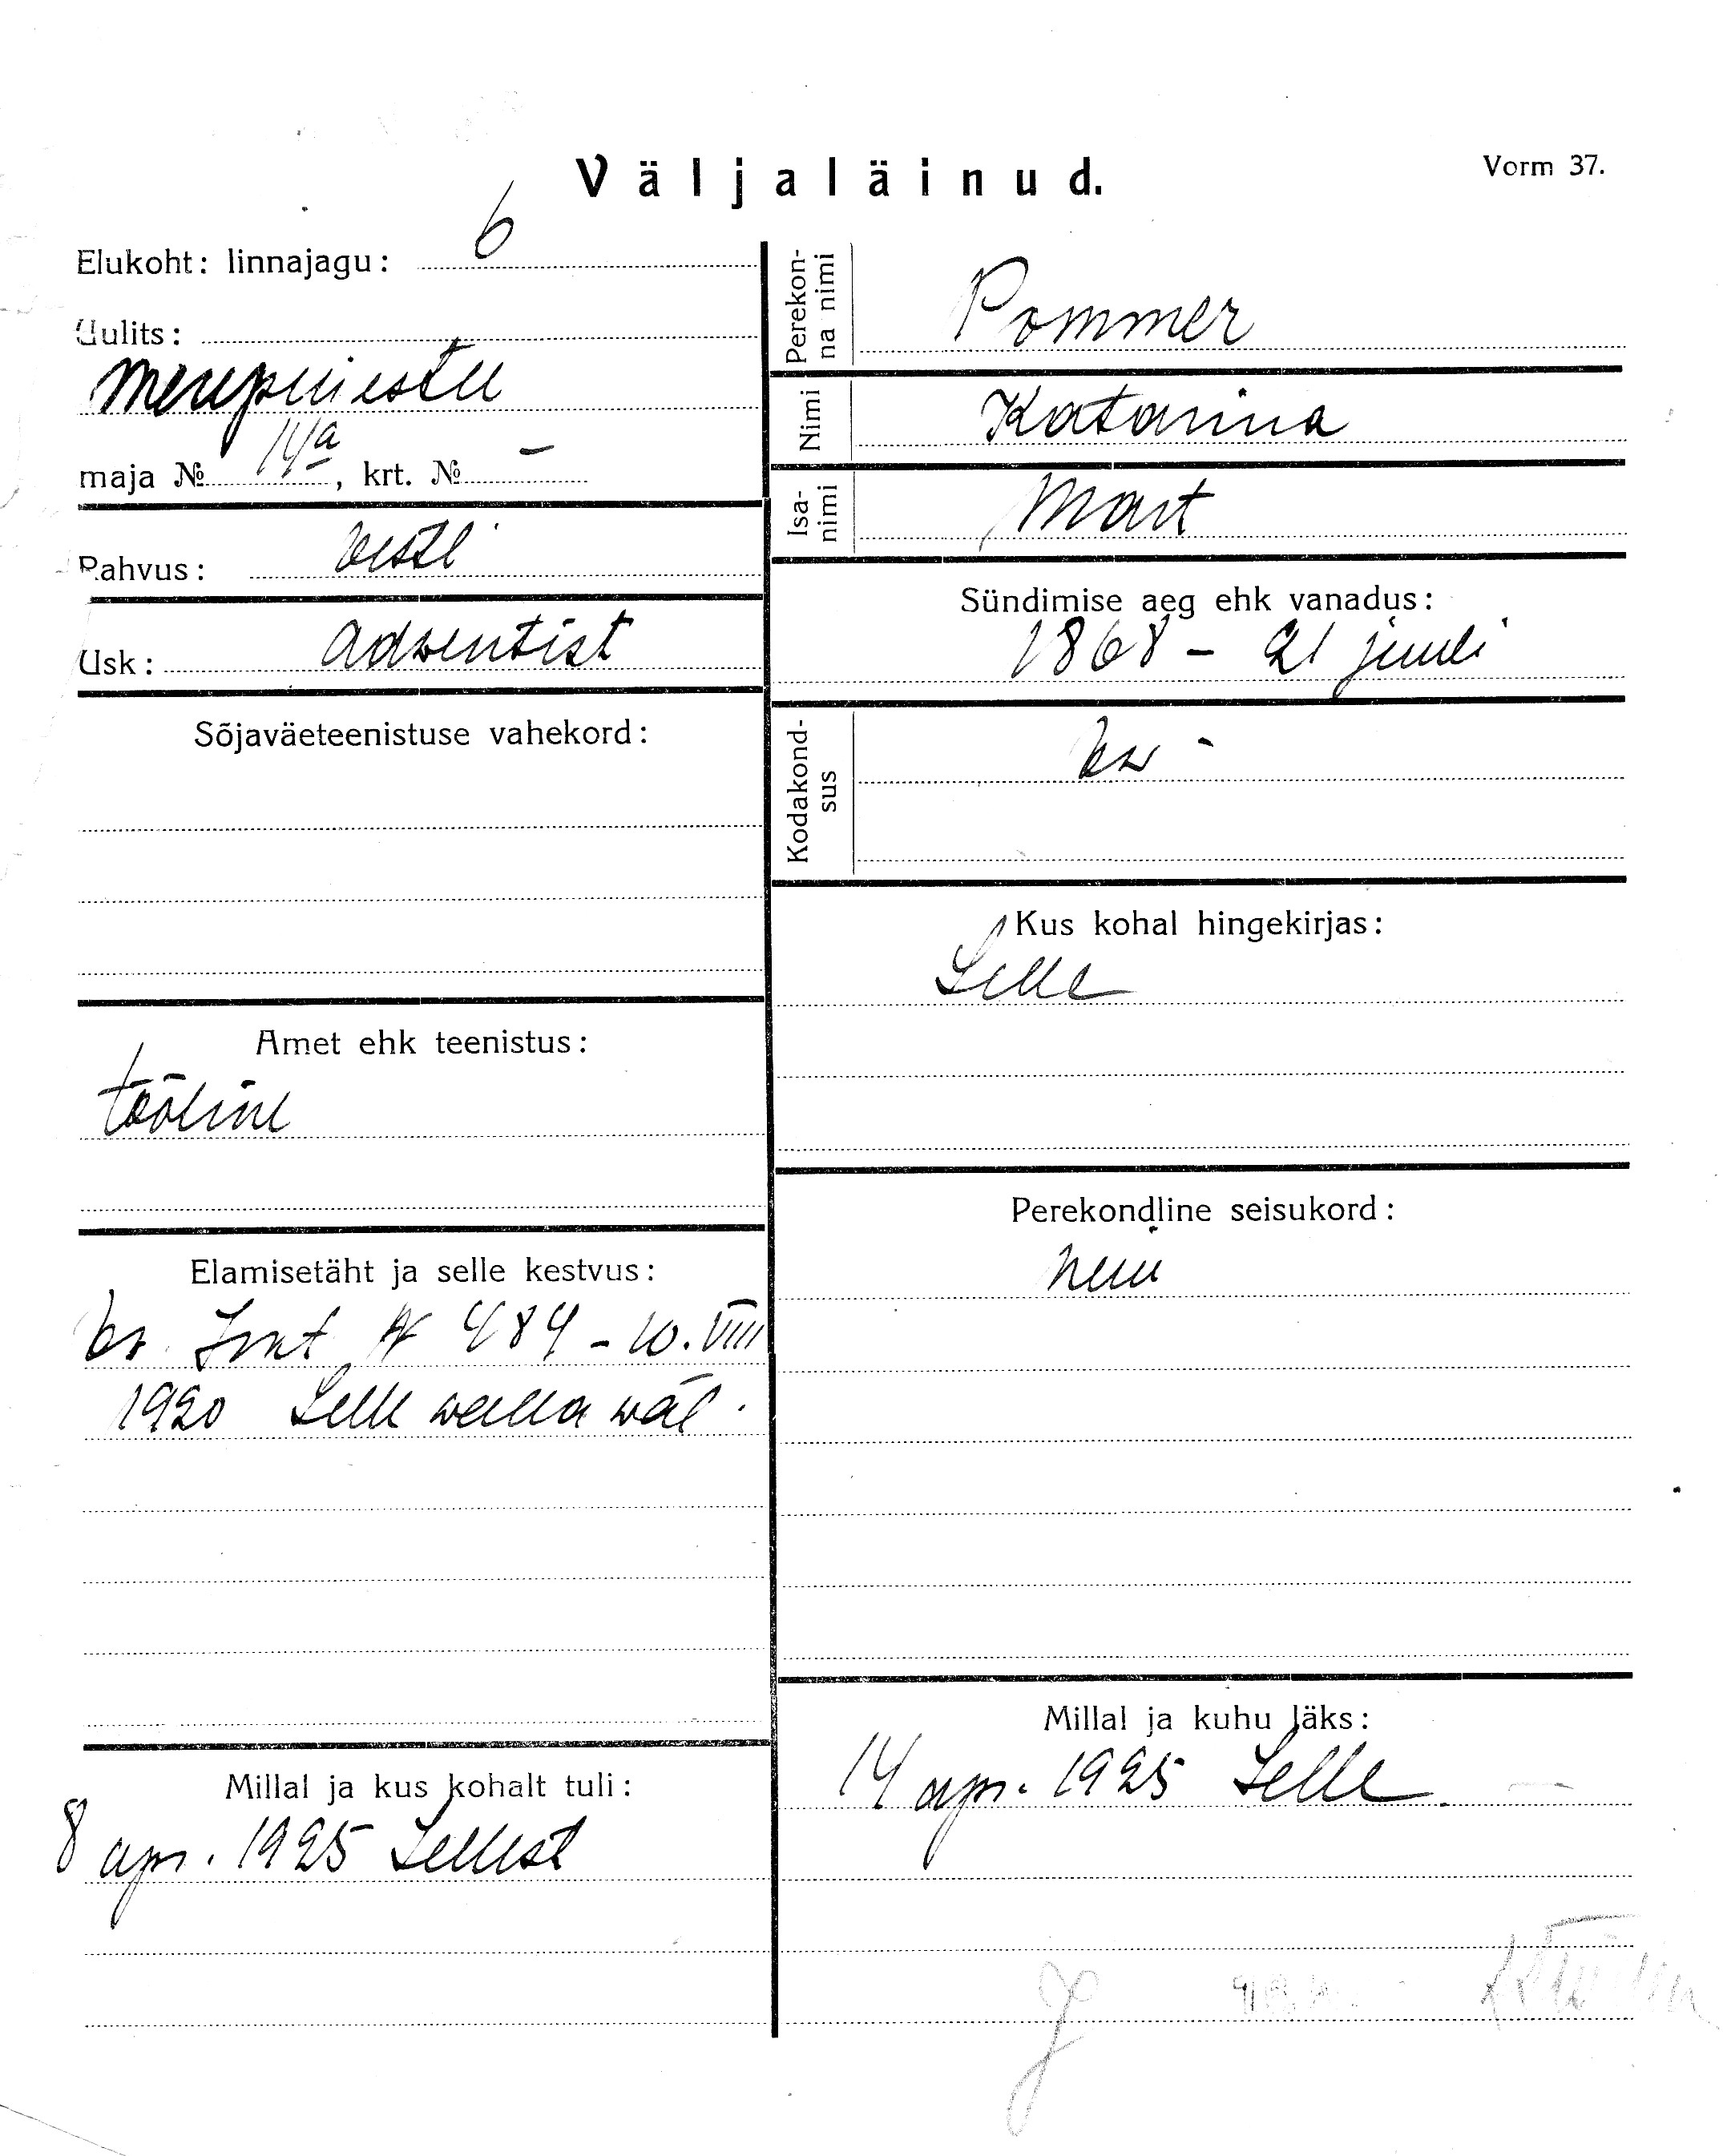 Väljaläinud.
Vorm 37.
Elukoht: linnajagu: 6
Uulits:
Merepuiestee
maja № 14a, krt. № –
Rahvus: Eesti
Usk: adventist
Sõjaväeteenistuse vahekord:
Amet ehk teenistus:
tööline
Elamisetäht ja selle kestvus:
484 - 10. VIII
1920 Selle walla wal.
Millal ja kus kohalt tuli:
8 apr. 1925 Sellest
Perekon-
na nimi
Pommer
Nimi
Katarina
Isa-
nimi
Mart
Sündimise aeg ehk vanadus:
1868 - 21 juuli
Kodakond-
sus
Ee -
Kus kohal hingekirjas:
Selle
Perekondline seisukord:
Millal ja kuhu läks:
14 apr. 1925 Selle.